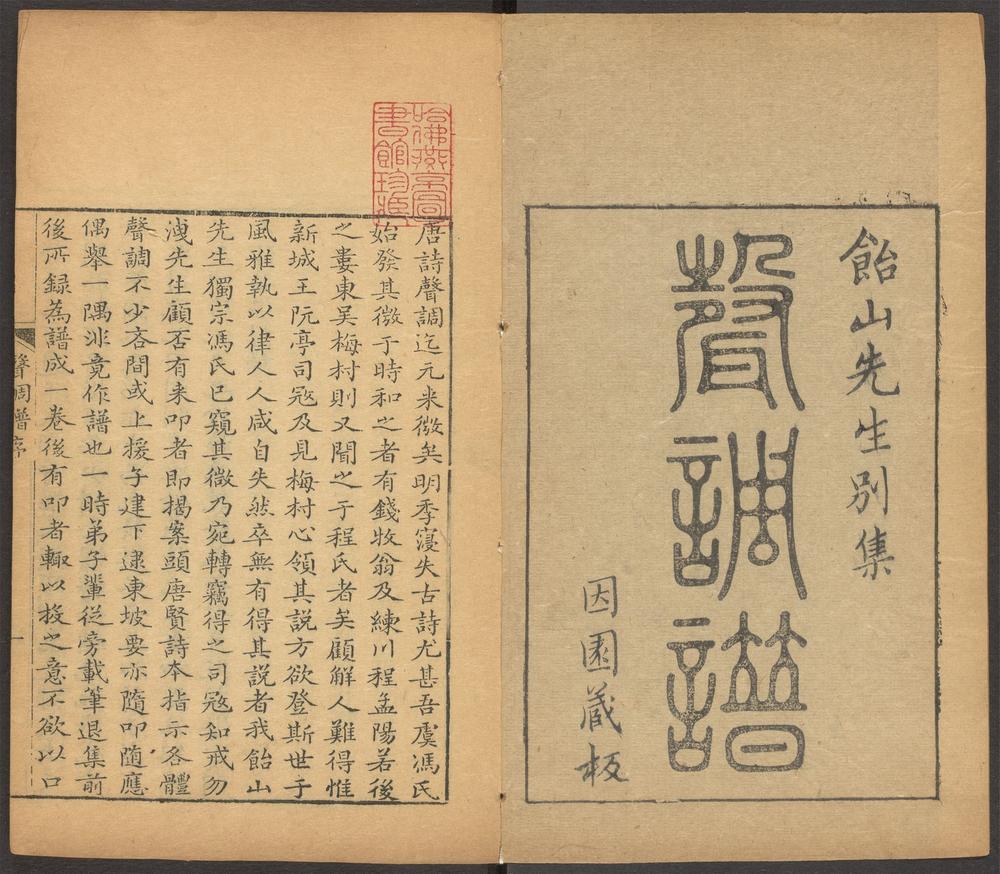 飴山先生別集
聲調譜
因園藏板
哈佛燕京圖
書館珍藏
唐詩聲調迄元来微矣明季寖失古詩尤甚吾虞馮氏
始發其微于時和之者有錢牧翁及練川程孟陽若後
之婁東吴梅村則又聞之于程氏者矣顧解人難得惟
新城王阮亭司寇及見梅村心領其説方欲登斯世于
風雅執以律人人咸自失然卒無有得其説者我飴山
先生獨宗馮氏已窺其微乃宛轉竊得之司寇知戒勿
洩先生顧否有来叩者即揭案頭唐賢詩本指示各體
聲調不少吝間或上援子建下逮東坡要亦隨叩随應
偶舉一隅非竟作譜也一時弟子輩從旁載筆退集前
後所録為譜成一卷後有叩者輙以授之意不欲以口
聲調譜序
一